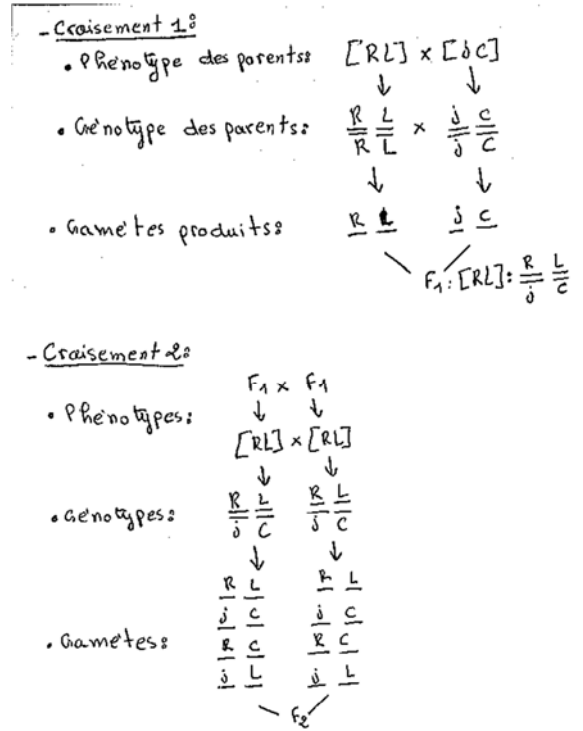 - Croisement 1:
• Phénotype des parents: [RL] x [jC]
• Génotype des parents: R L x j C
R L j C
• Gamètes produits: R L j C
F1: [RL]: R L
j C
- Croisement 2:
F1 x F1
• Phénotypes: [RL] x [RL]
• Génotypes: R L R L
j C j C
R L R L
j C j C
• Gamètes: R C R C
j L j L
F2